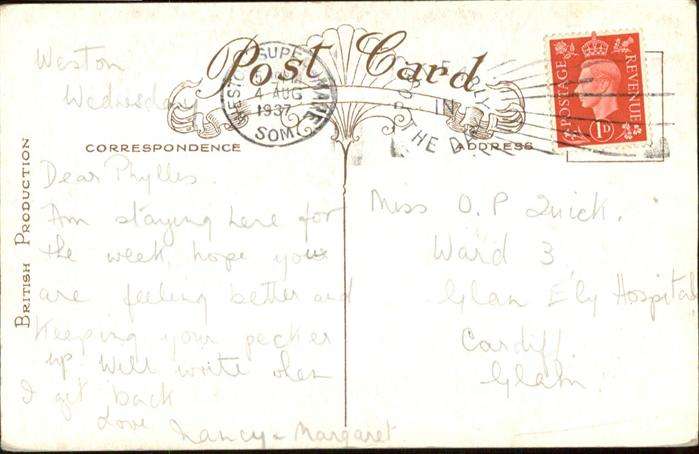 Post Card
WESTON SUPER MARE
4 AUG
1937
SOM
POST EARLY
IN
THE D
POSTAGE
REVENUE
1D
CORRESPONDENCE
ADDRESS
BRITISH PRODUCTION
Weston
Wednesday
Dear Phylles.
Am staying here for
the week, hope you
are feeling better and
keeping your pecker
up Will write when
I get back
Love Nancy & Margaret
Miss O. P Quick.
Ward 3
Glan Ely Hospital
Cardiff.
Glam.